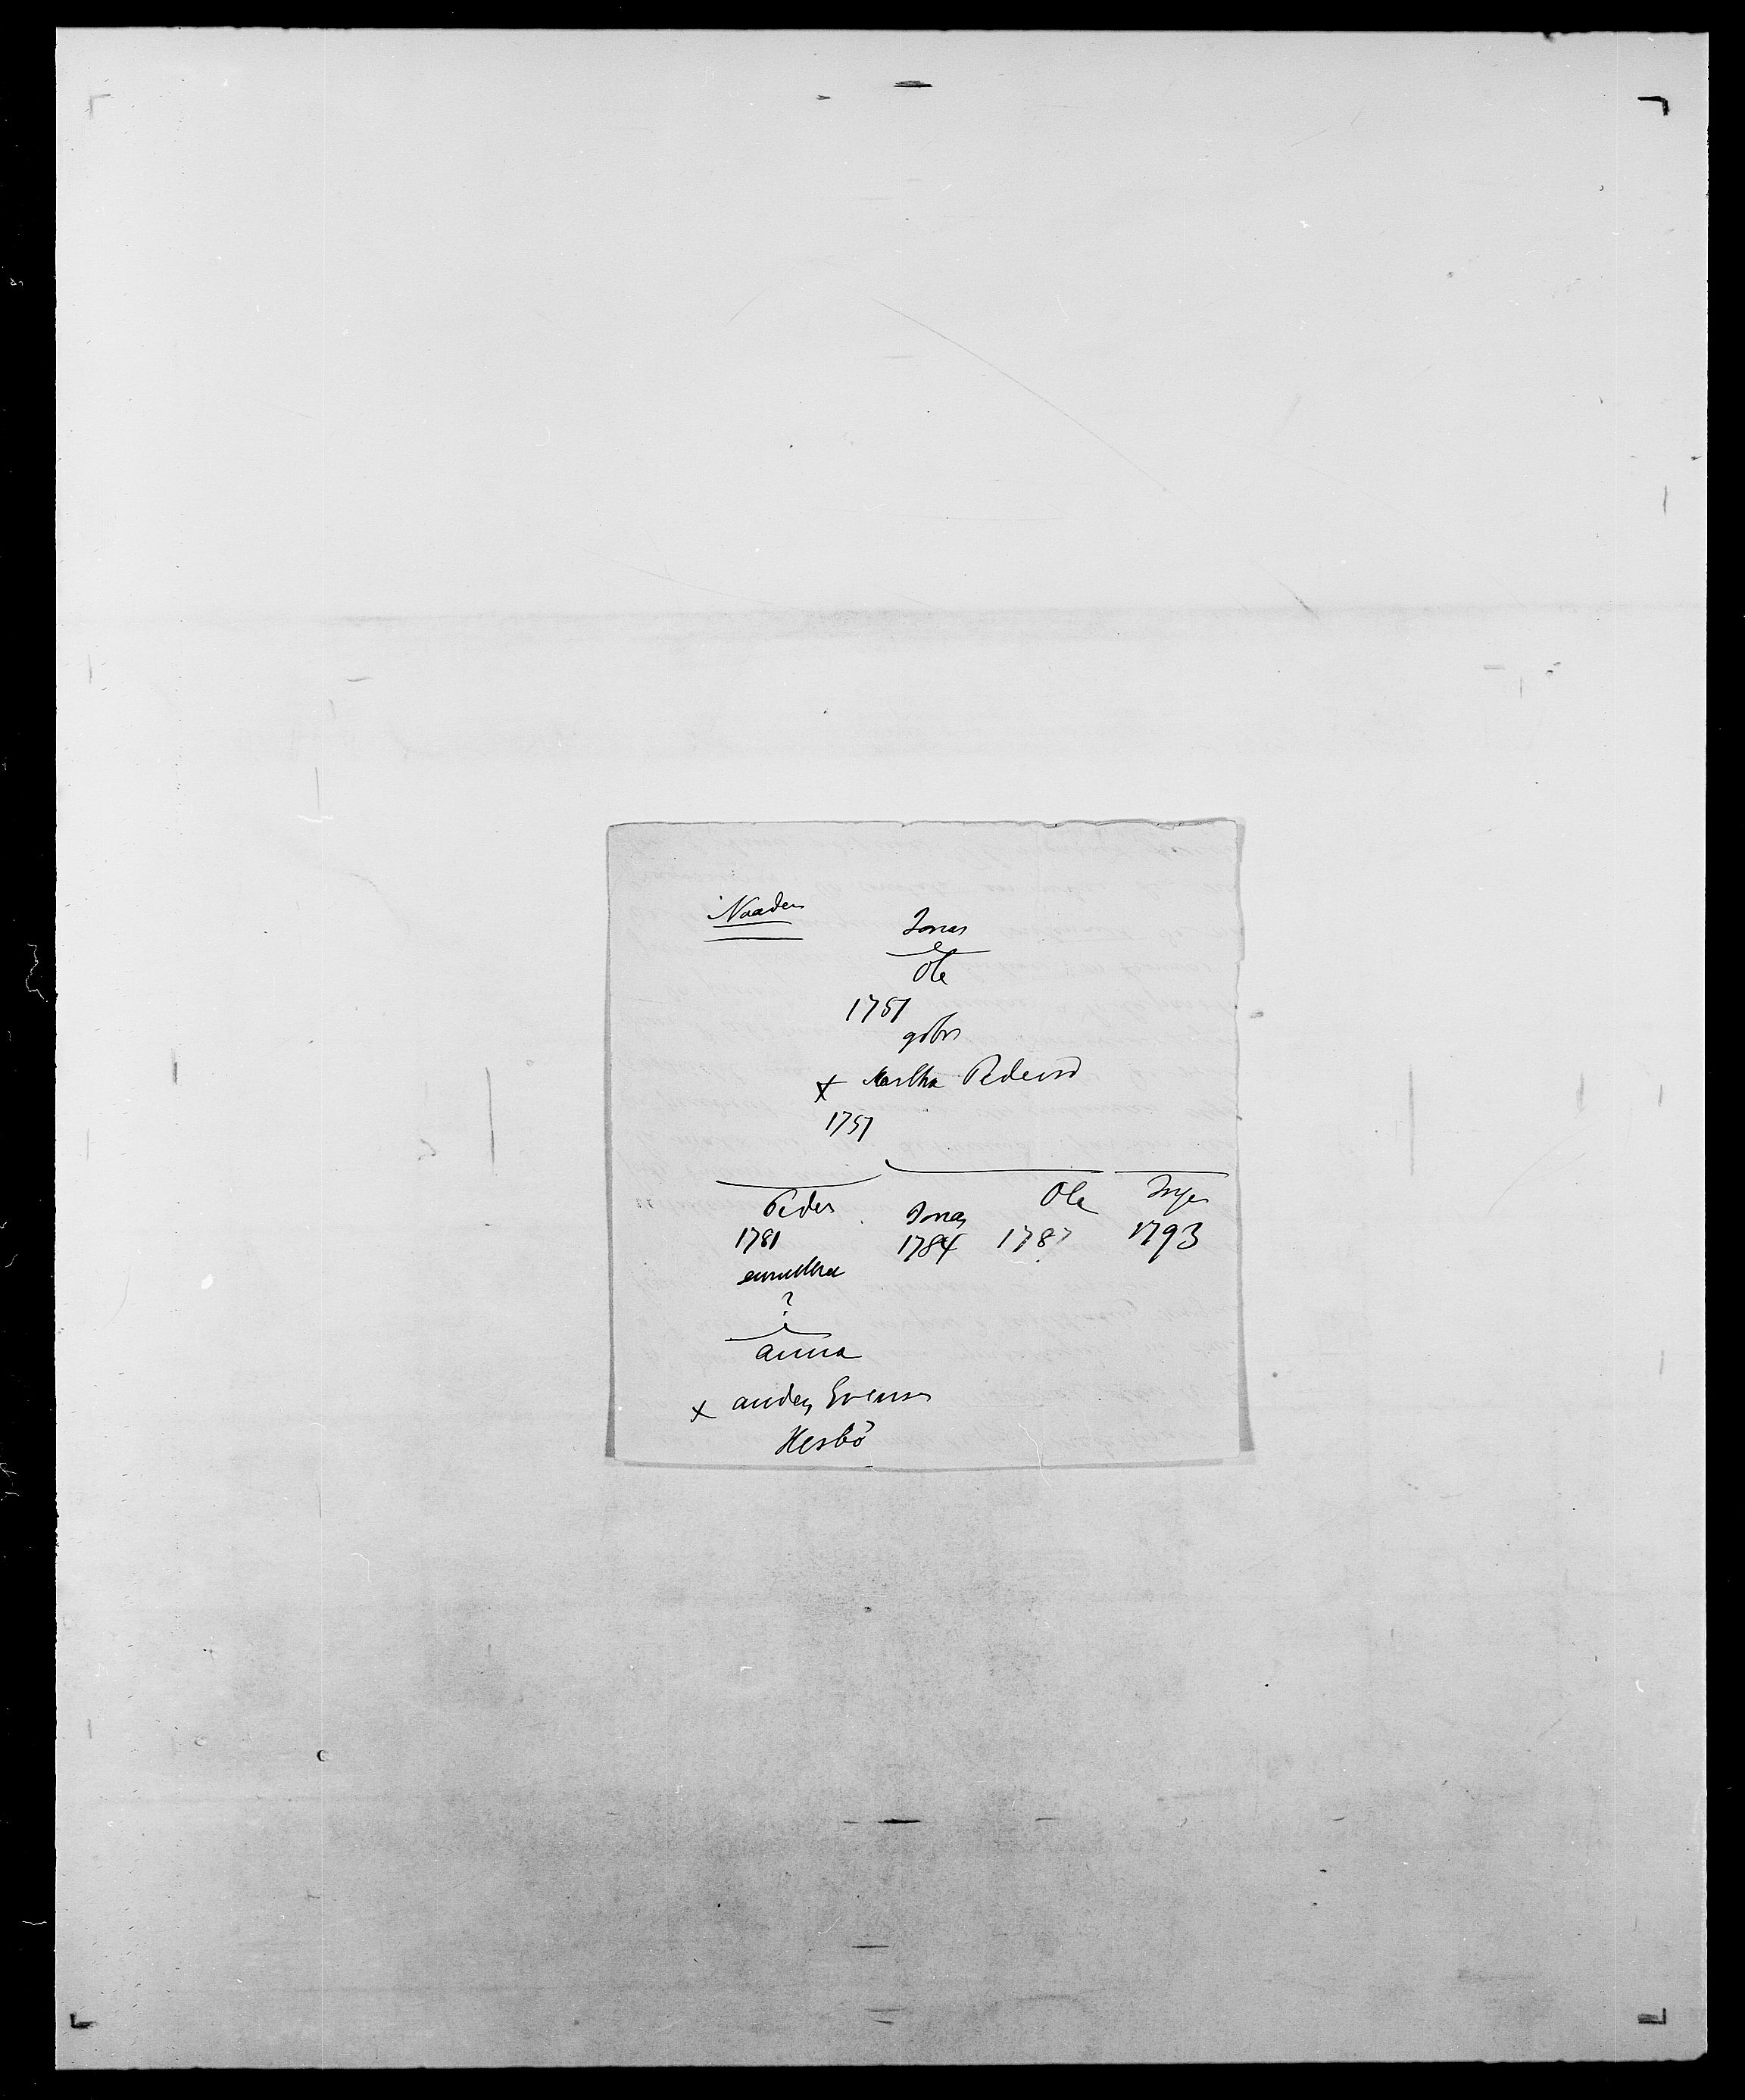 Naaden
Jonas
Ole
1751
gbr
x Martha Pedersd
1757
Peder Jonas Ole Inger
1781 1784 1787 1793
?
Anna
x Anders Evensen
Hesbö